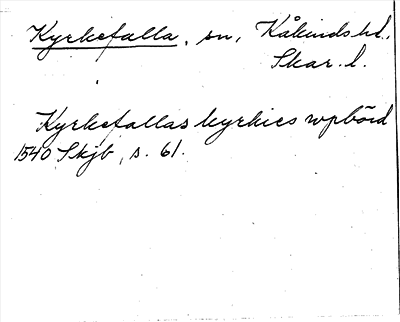 Kyrkefalla, sn, Kåkinds hd,
Skar. l.
Kyrkefallas kyrkies wpbörd
1540 Skjb, s. 61.